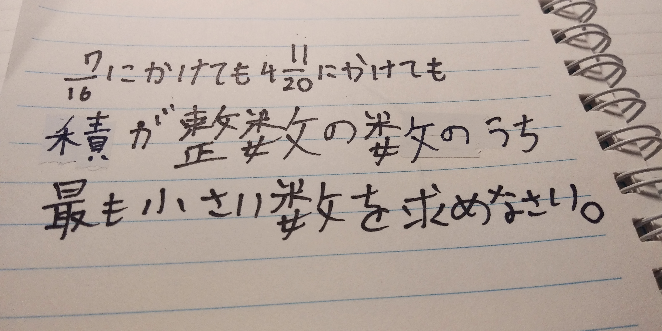 7/16にかけても4 11/20にかけても
積が整数の数のうち
最も小さい数を求めなさい。